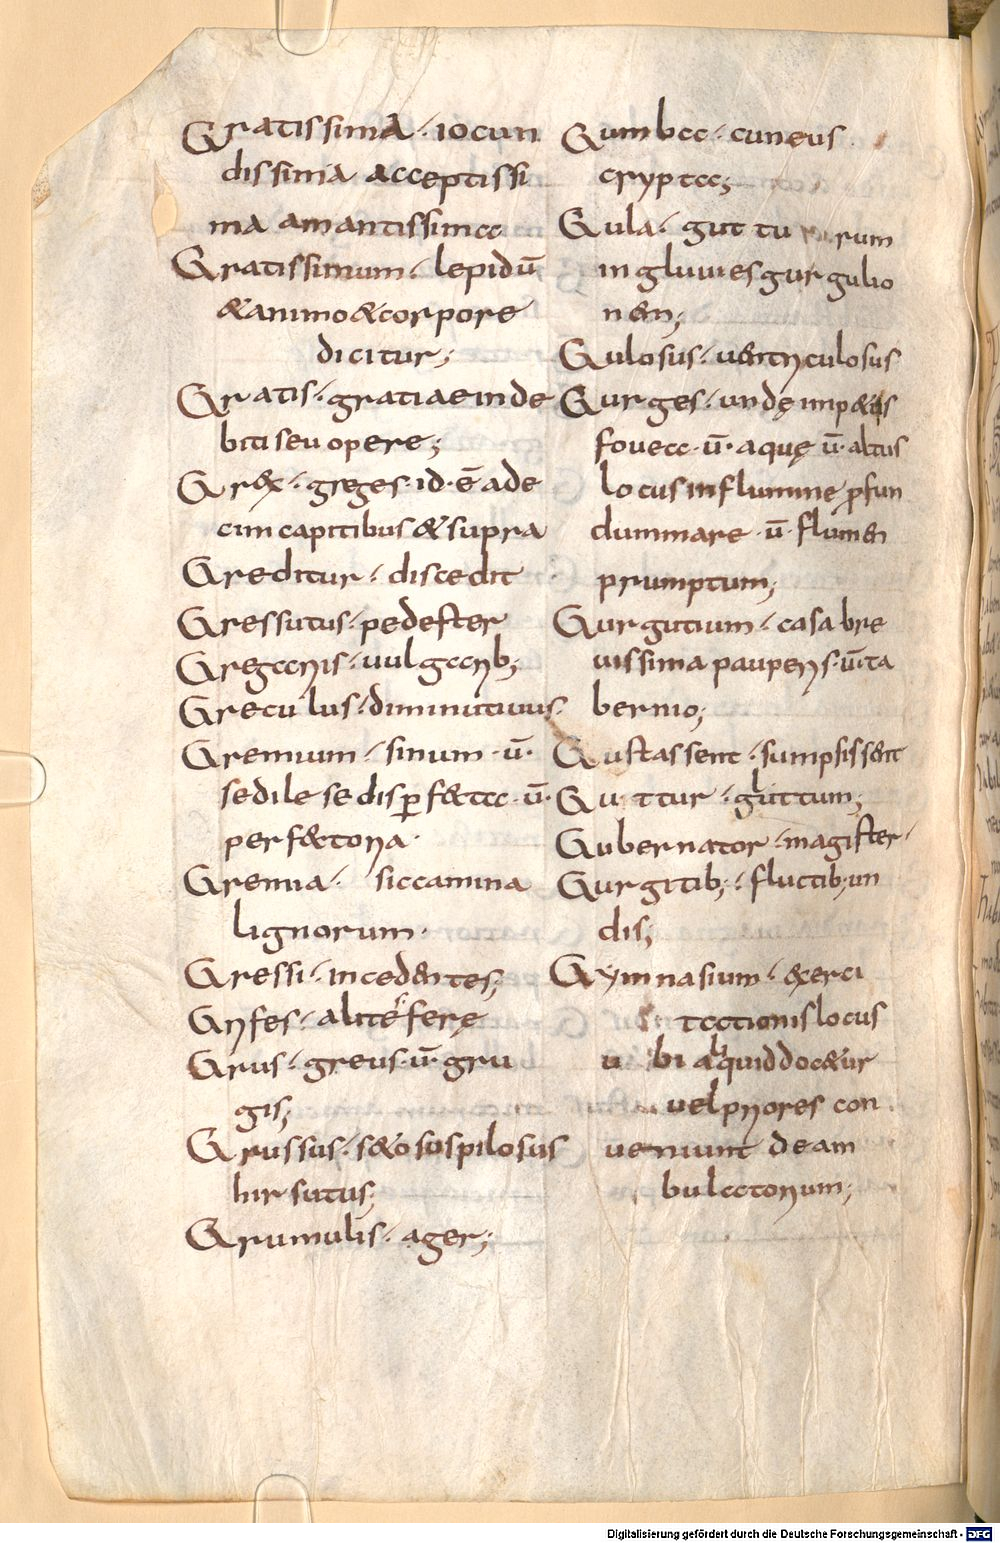 Gratissima · iocun
dissima acceptissi
ma amantissima
Gratissimum · lepidū
&animo&corpore
dicitur;
Gratis · gratiaeinde
biti seu opere;
Gr&x · greges · id · ē ade
cim capitibus & supra
Greditur · discedit
Gressutus · pedester
Gregariis · uulgarib;
Greculus · diminutiuus ·
Gremium · sinum · ū ·
sedile sedis ꝑ f&ta · ū ·
per f&toria ·
Gremia · siccamina
lignorum ·
Gressi · incedentes;
Grifes · alite ferę
Grus · greus · ū · gru
gis;
Grussus · s&osospilosus
hirsutus;
Grumulis · ager;
Gumba · cuneus
crypta;
Gula · guttu rum
ingluuies gurgulio
nem;
Gulosus · uentriculosus
Gurges · undę imp&us
fouea · ū · aquę ū · altus
locus in fluminę ꝓfun
dum mare · ū · flumen
prumptum;
Gurgutium · casa bre
uissima pauperis · ū · ta
bernio;
Gustassent · sumpsissent
Guttur · gluttum;
Gubernator · magister ·
Gurgitib; · fluctib; un
dis;
Gymnasium · exerci
tationis locus
ubi aliquid doc&ur
uel priores con
ueniunt deam
bulatorium;
Digitalisierung gefördert durch die Deutsche Forschungsgemeinschaft - DFG